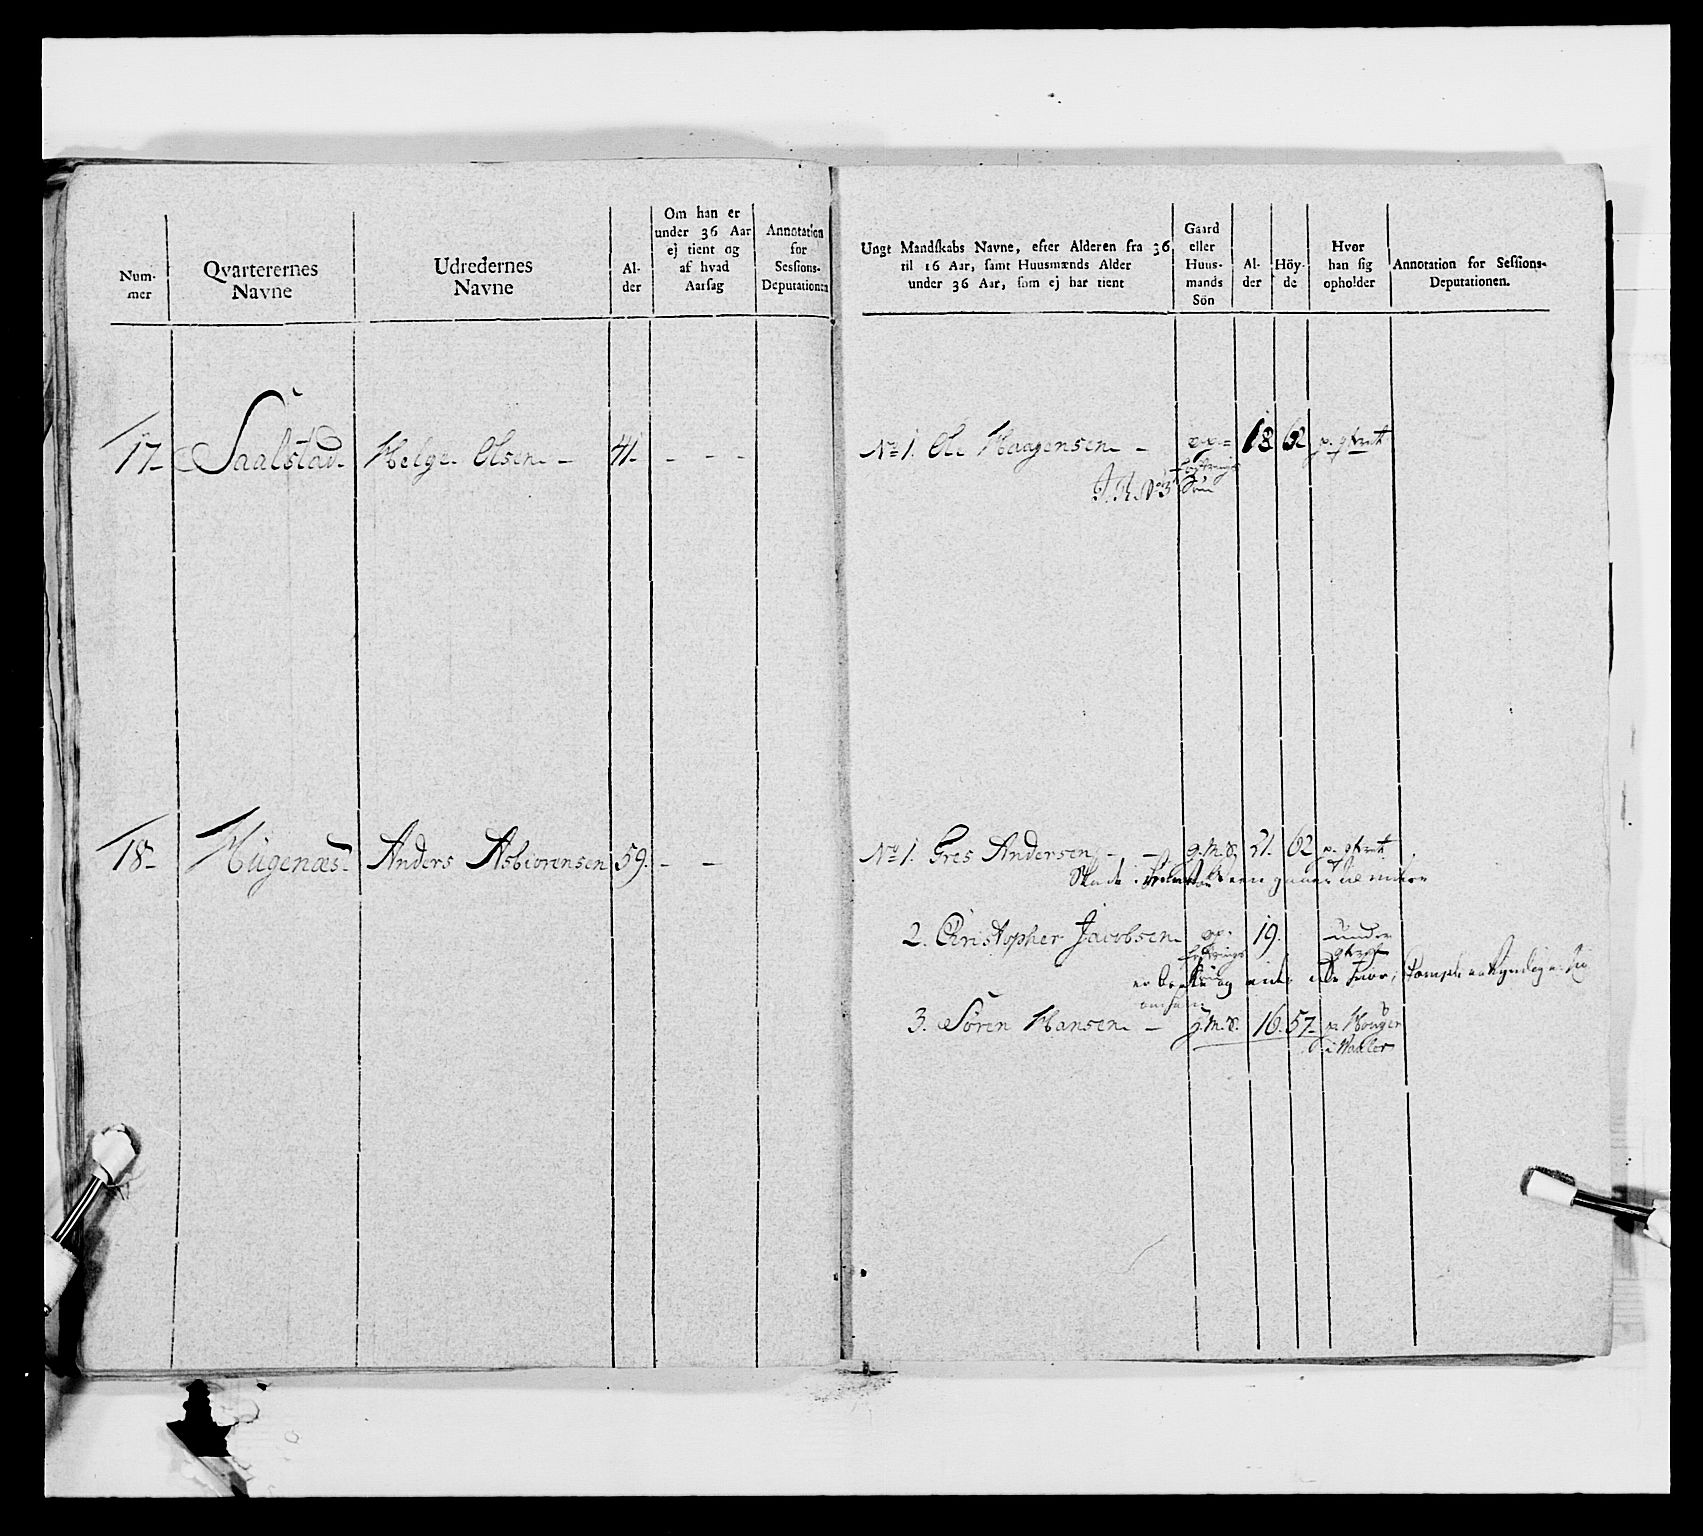 Num-
mer
Qvarterernes
Navne
Udredernes
Navne
Al-
der
Om han er
under 36 Aar
ej tient og
af hvad
Aarsag
Annotation
for
Sessions-
Deputationen
17- Saalstad- Helge Olsen - 41. - - -
18- Hügenæs- Anders Asbiörensen 59. - -
Ungt Mandskabs Navne, efter Alderen fra 36
til 16 Aar, samt Huusmænds Alder
under 36 Aar, som ej har tient
Gaard
eller
Huus-
mands
Sön
Al-
der
Höy-
de
Hvor
han sig
opholder
Annotation for Sessions-
Deputationen.
No 1. Ole Haagensen - op= 18 62 p. qvart
fostrings
J. R. No 3 Sön
No 1. Gres Andersen - - g.M.S. 21. 62 p. qvart
Skade i
2. Christopher Jacobsen op- 19. under
fostrings qvart
er
3. Sören Hansen - g.M.S. 16. 57- p. Houger
i Waaler